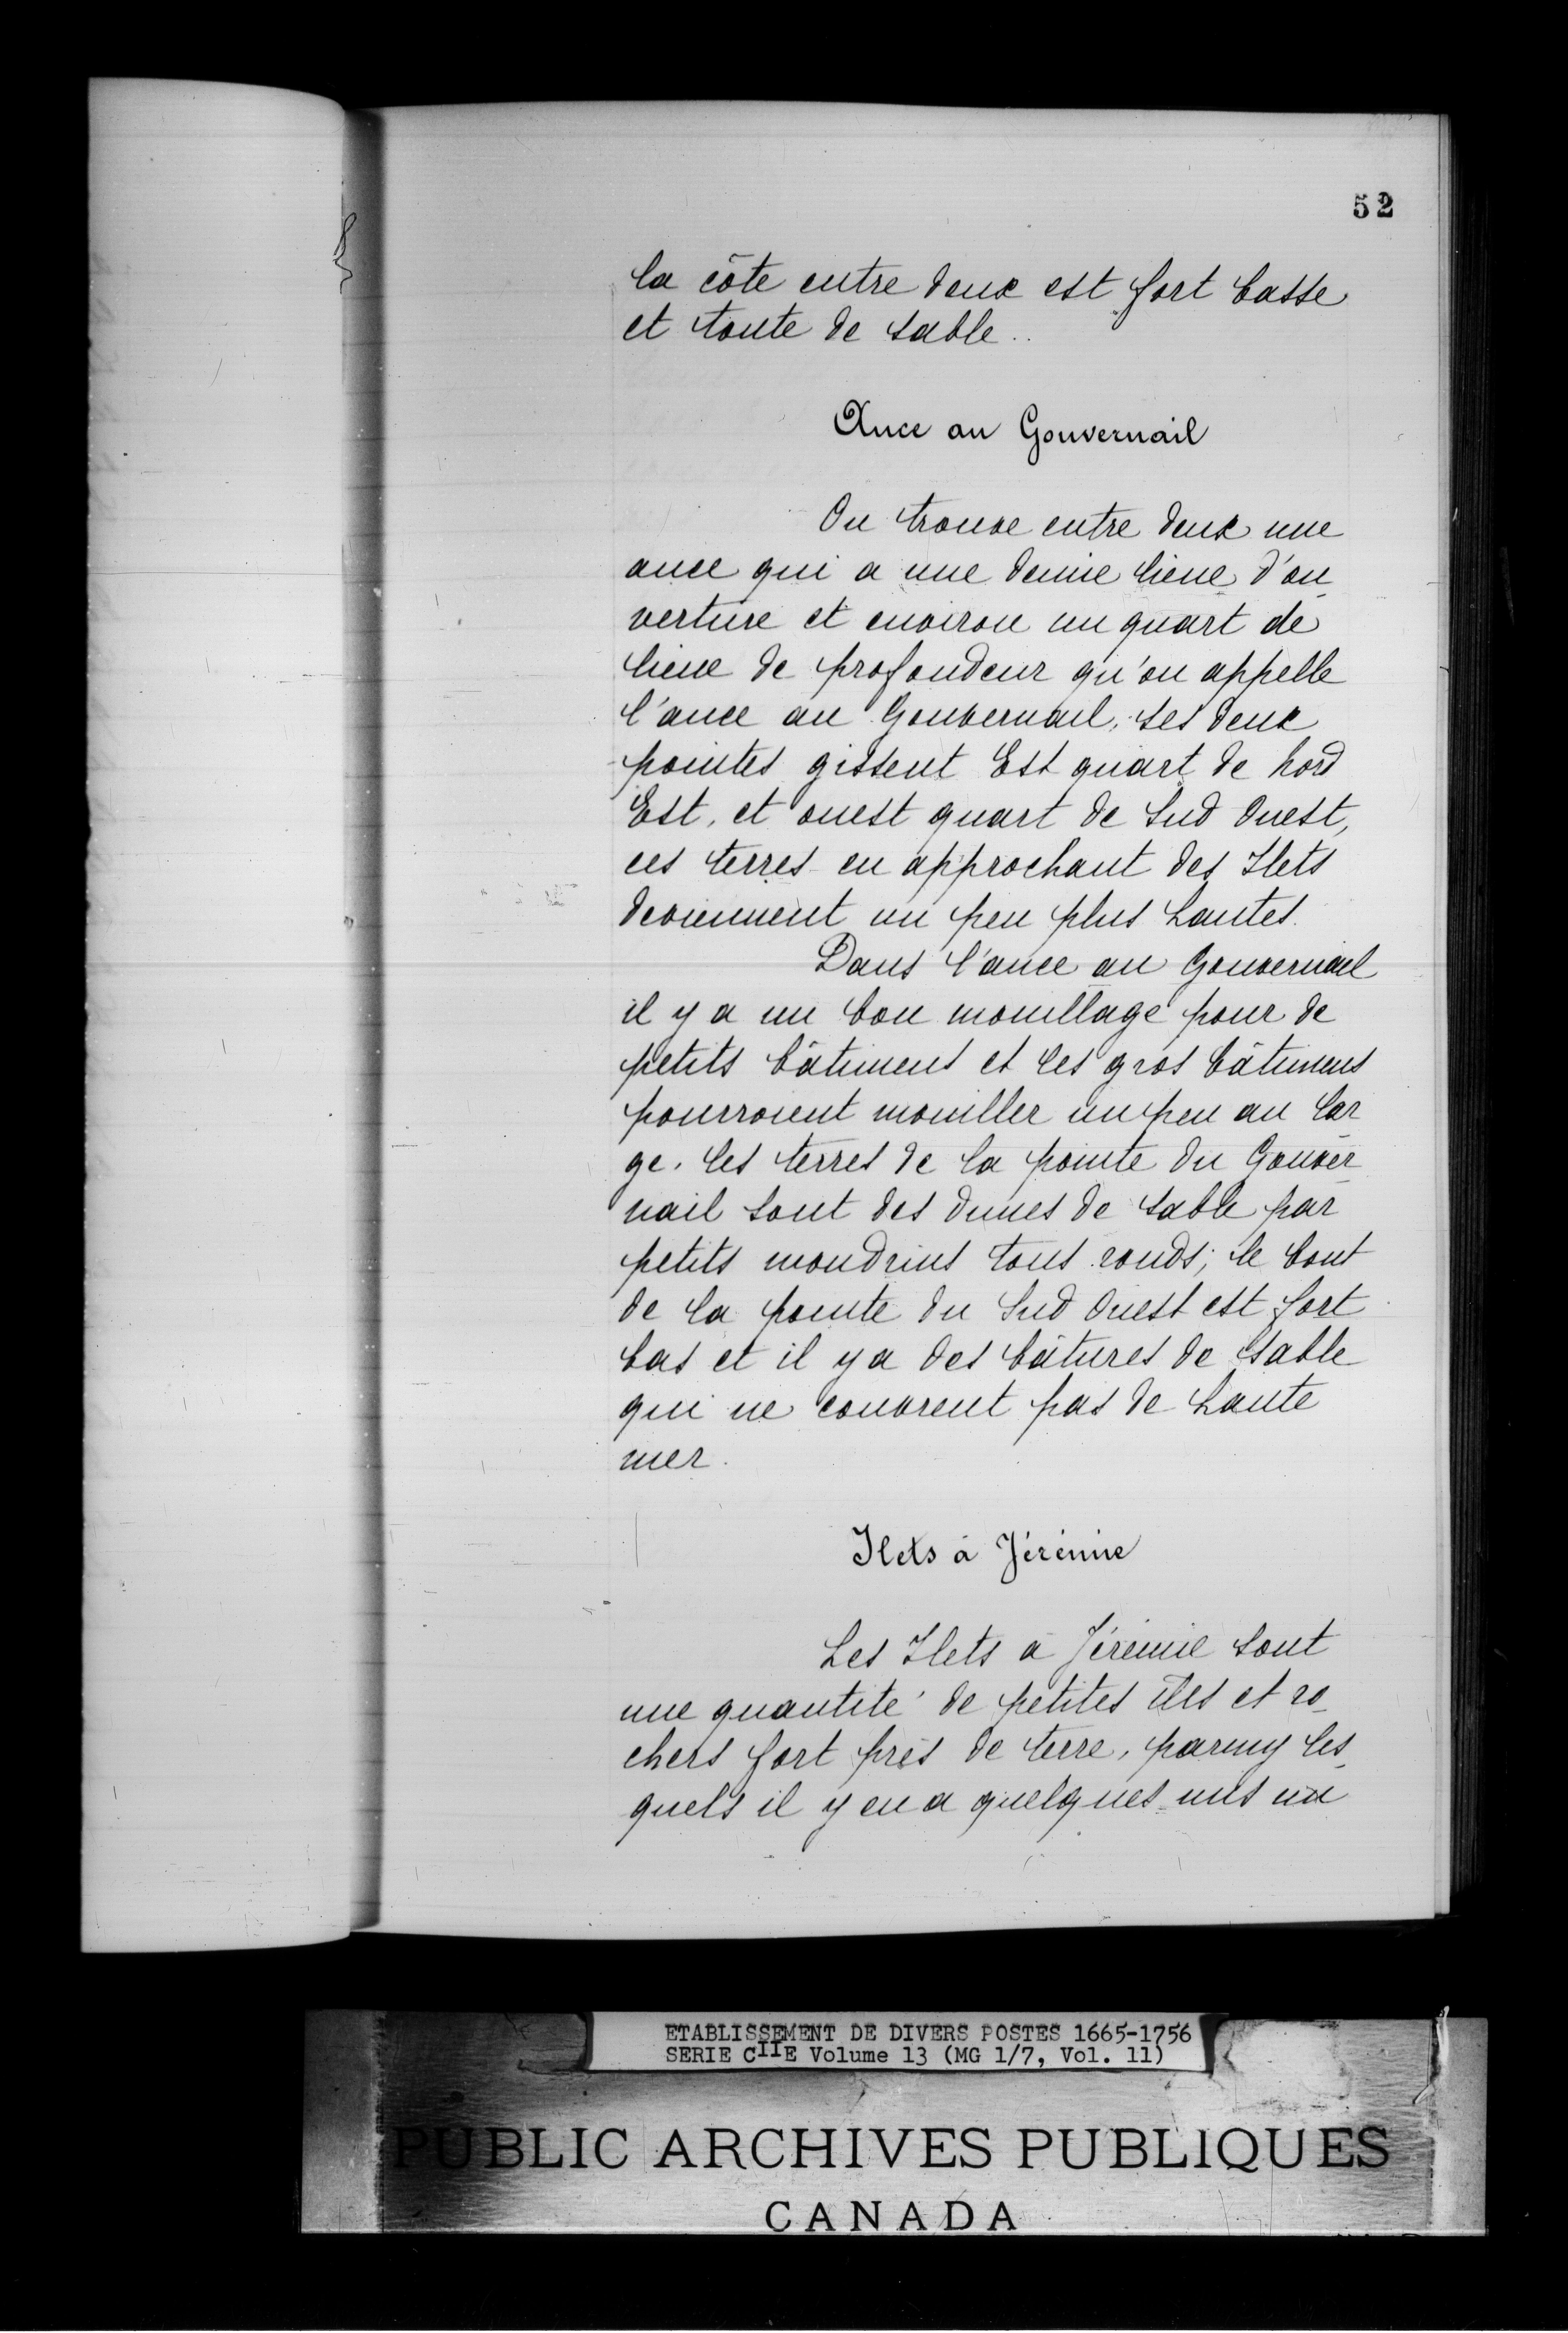 52
la côte entre deux est fort basse
et toute de sable..
Ance au Gouvernail
On trouve entre deux une
ance qui a une demie lieue d'ou_
verture et environ un quart de
lieue de profondeur qu'on appelle
l'ance au Gouvernail, ses deux
pointes gissent Est quart de nord
Est, et ouest quart de Sud Ouest,
ces terres en approchant des Ilets
deviennent un peu plus hautes.
Dans l'ance au Gouvernail
il y a un bon mouillage pour de
petits bâtimens et les gros bâtimens
pourroient mouiller un peu au lar
ge. les terres de la pointe du Gouver_
nail sont des dunes de sable par
petits mondrins tous ronds; le bout
de la pointe du Sud Ouest est fort
bas et il y a des bâtures de sable
qui ne couvrent pas de haute
mer.
Ilets à Jérémie
Les Ilets à Jérémie sont
une quantité de petites îles et ro_
chers fort près de terre, parmy les_
quels il y en a quelques uns un
ETABLISSEMENT DE DIVERS POSTES 1665-1756
SERIE CIIE Volume 13 (MG 1/7, Vol. 11)
PUBLIC ARCHIVES PUBLIQUES
CANADA